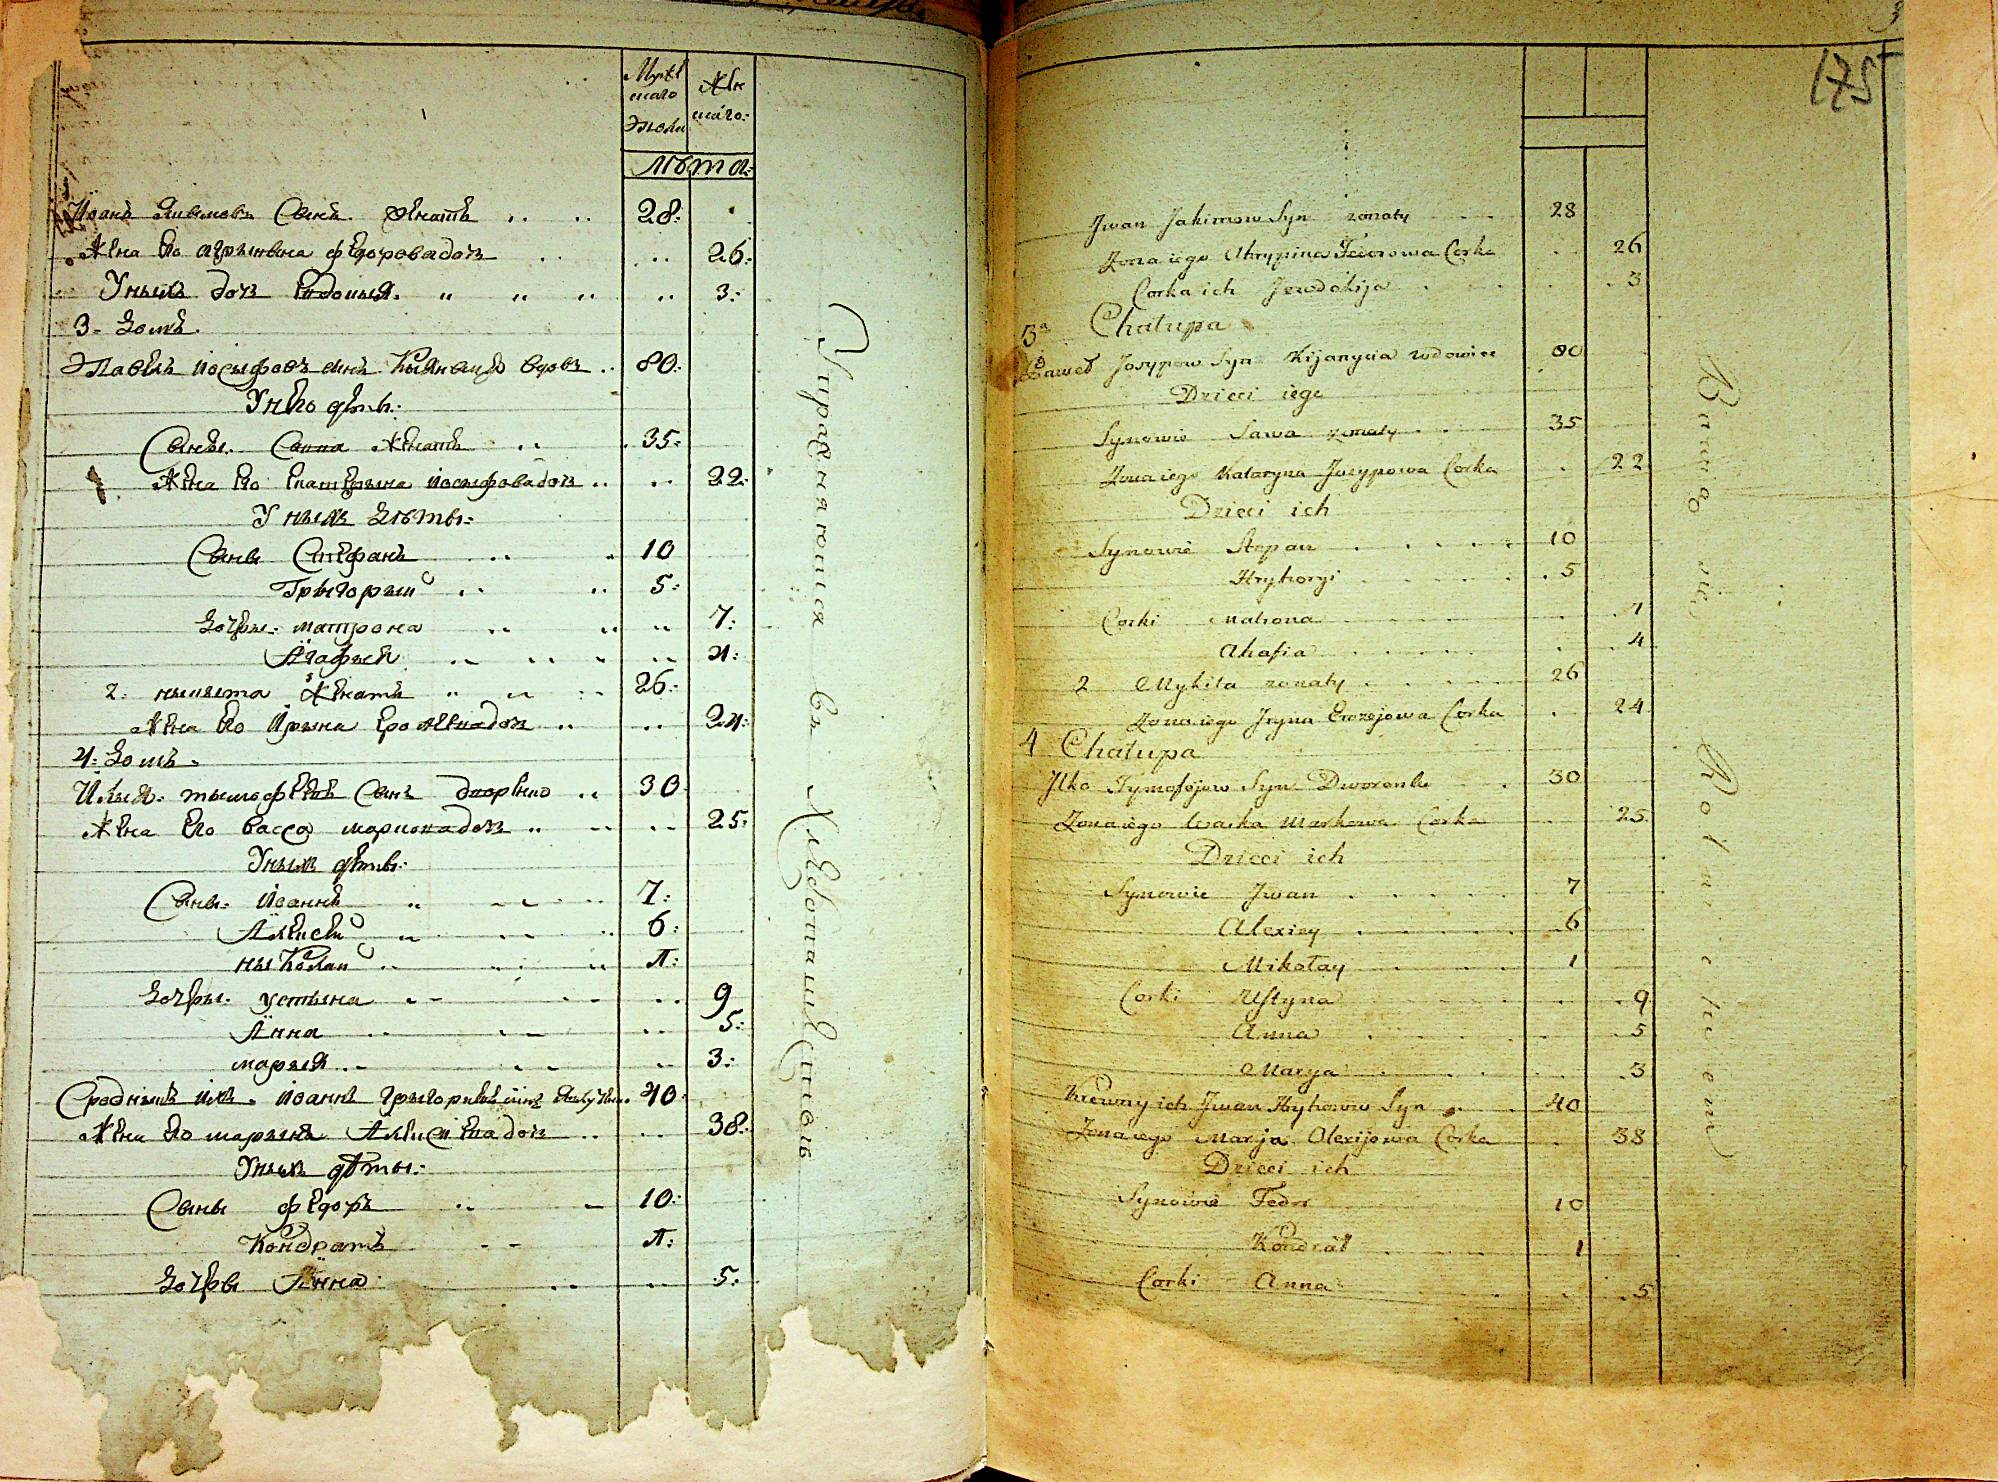 Мужескаго Полу
Женскаго:
лѣта:
Иоанъ Якимовъ Сынъ женатъ 28:
Жена Его агрыпына федоровадочъ 26:
Уныхъ дочъ Евдокыя 3:
3- Домъ.
Павелъ иосыфовъ сынъ Кыяныця вдовъ 80:
Унего дѣты:
Сыны. Савва Женатъ 35:
1. Жена Его Екатерына иосыфовадочъ 22:
У ныхъ дѣты:
Сыны Стефанъ 10
Грыгорый 5:
Дочеры: матрона 7:
Агафыя 4:
2: ныкыта Женатъ 26:
Жена Его Ирына 24:
4: Домъ.
Илыя: тымофеевъ Сынъ 30
Жена Его васса марковадочъ 25:
Уныхъ дѣты:
Сыны: Иоаннъ 7:
Алексей 6:
ныколай 1:
Дочеры: устына 9
Анна 5:
марыя 3:
Сродныкъ ихъ. Иоаннъ грыгориевъ сынъ 40
Жена Его марыя Алексеевадочъ 38:
Уныхъ дѣты:
Сыны федоръ 10:
Кондратъ 1:
Дочеры Анна 5:
Упражняются въ Хлебопашестве
175
Jwan Jakimow Syn zonaty 28
Zona iego Ahrypina Fedorowa Corka 26
Corka ich Jewdokija 3
3a Chałupa
Paweł Josypow Syn Kijanycia wdowiec 80
Dzieci iego
Synowie Sawa zonaty 35
Zona iego Kataryna Josypowa Corka 22
Dzieci ich
Synowie Stepan 10
Hryhoryi 5
Corki Matrona 7
Ahafia 4
2 Mykita zonaty 26
Zona iego Jryna Corka 24
4 Chałupa
Jlko Tymofojow Syn 30
Zona iego Waska Markowa Corka 25
Dzieci ich
Synowie Jwan 7
Alexiey 6
Mikołay 1
Corki Ustyna 9
Anna 5
Marya 3
Krewny ich Jwan Hryhorow Syn 40
Zona iego Marja Olexijowa Corka 38
Dzieci ich
Synowie Fedor 10
Kondrat 1
Corki Anna 5
Bawią się Rolnictwem